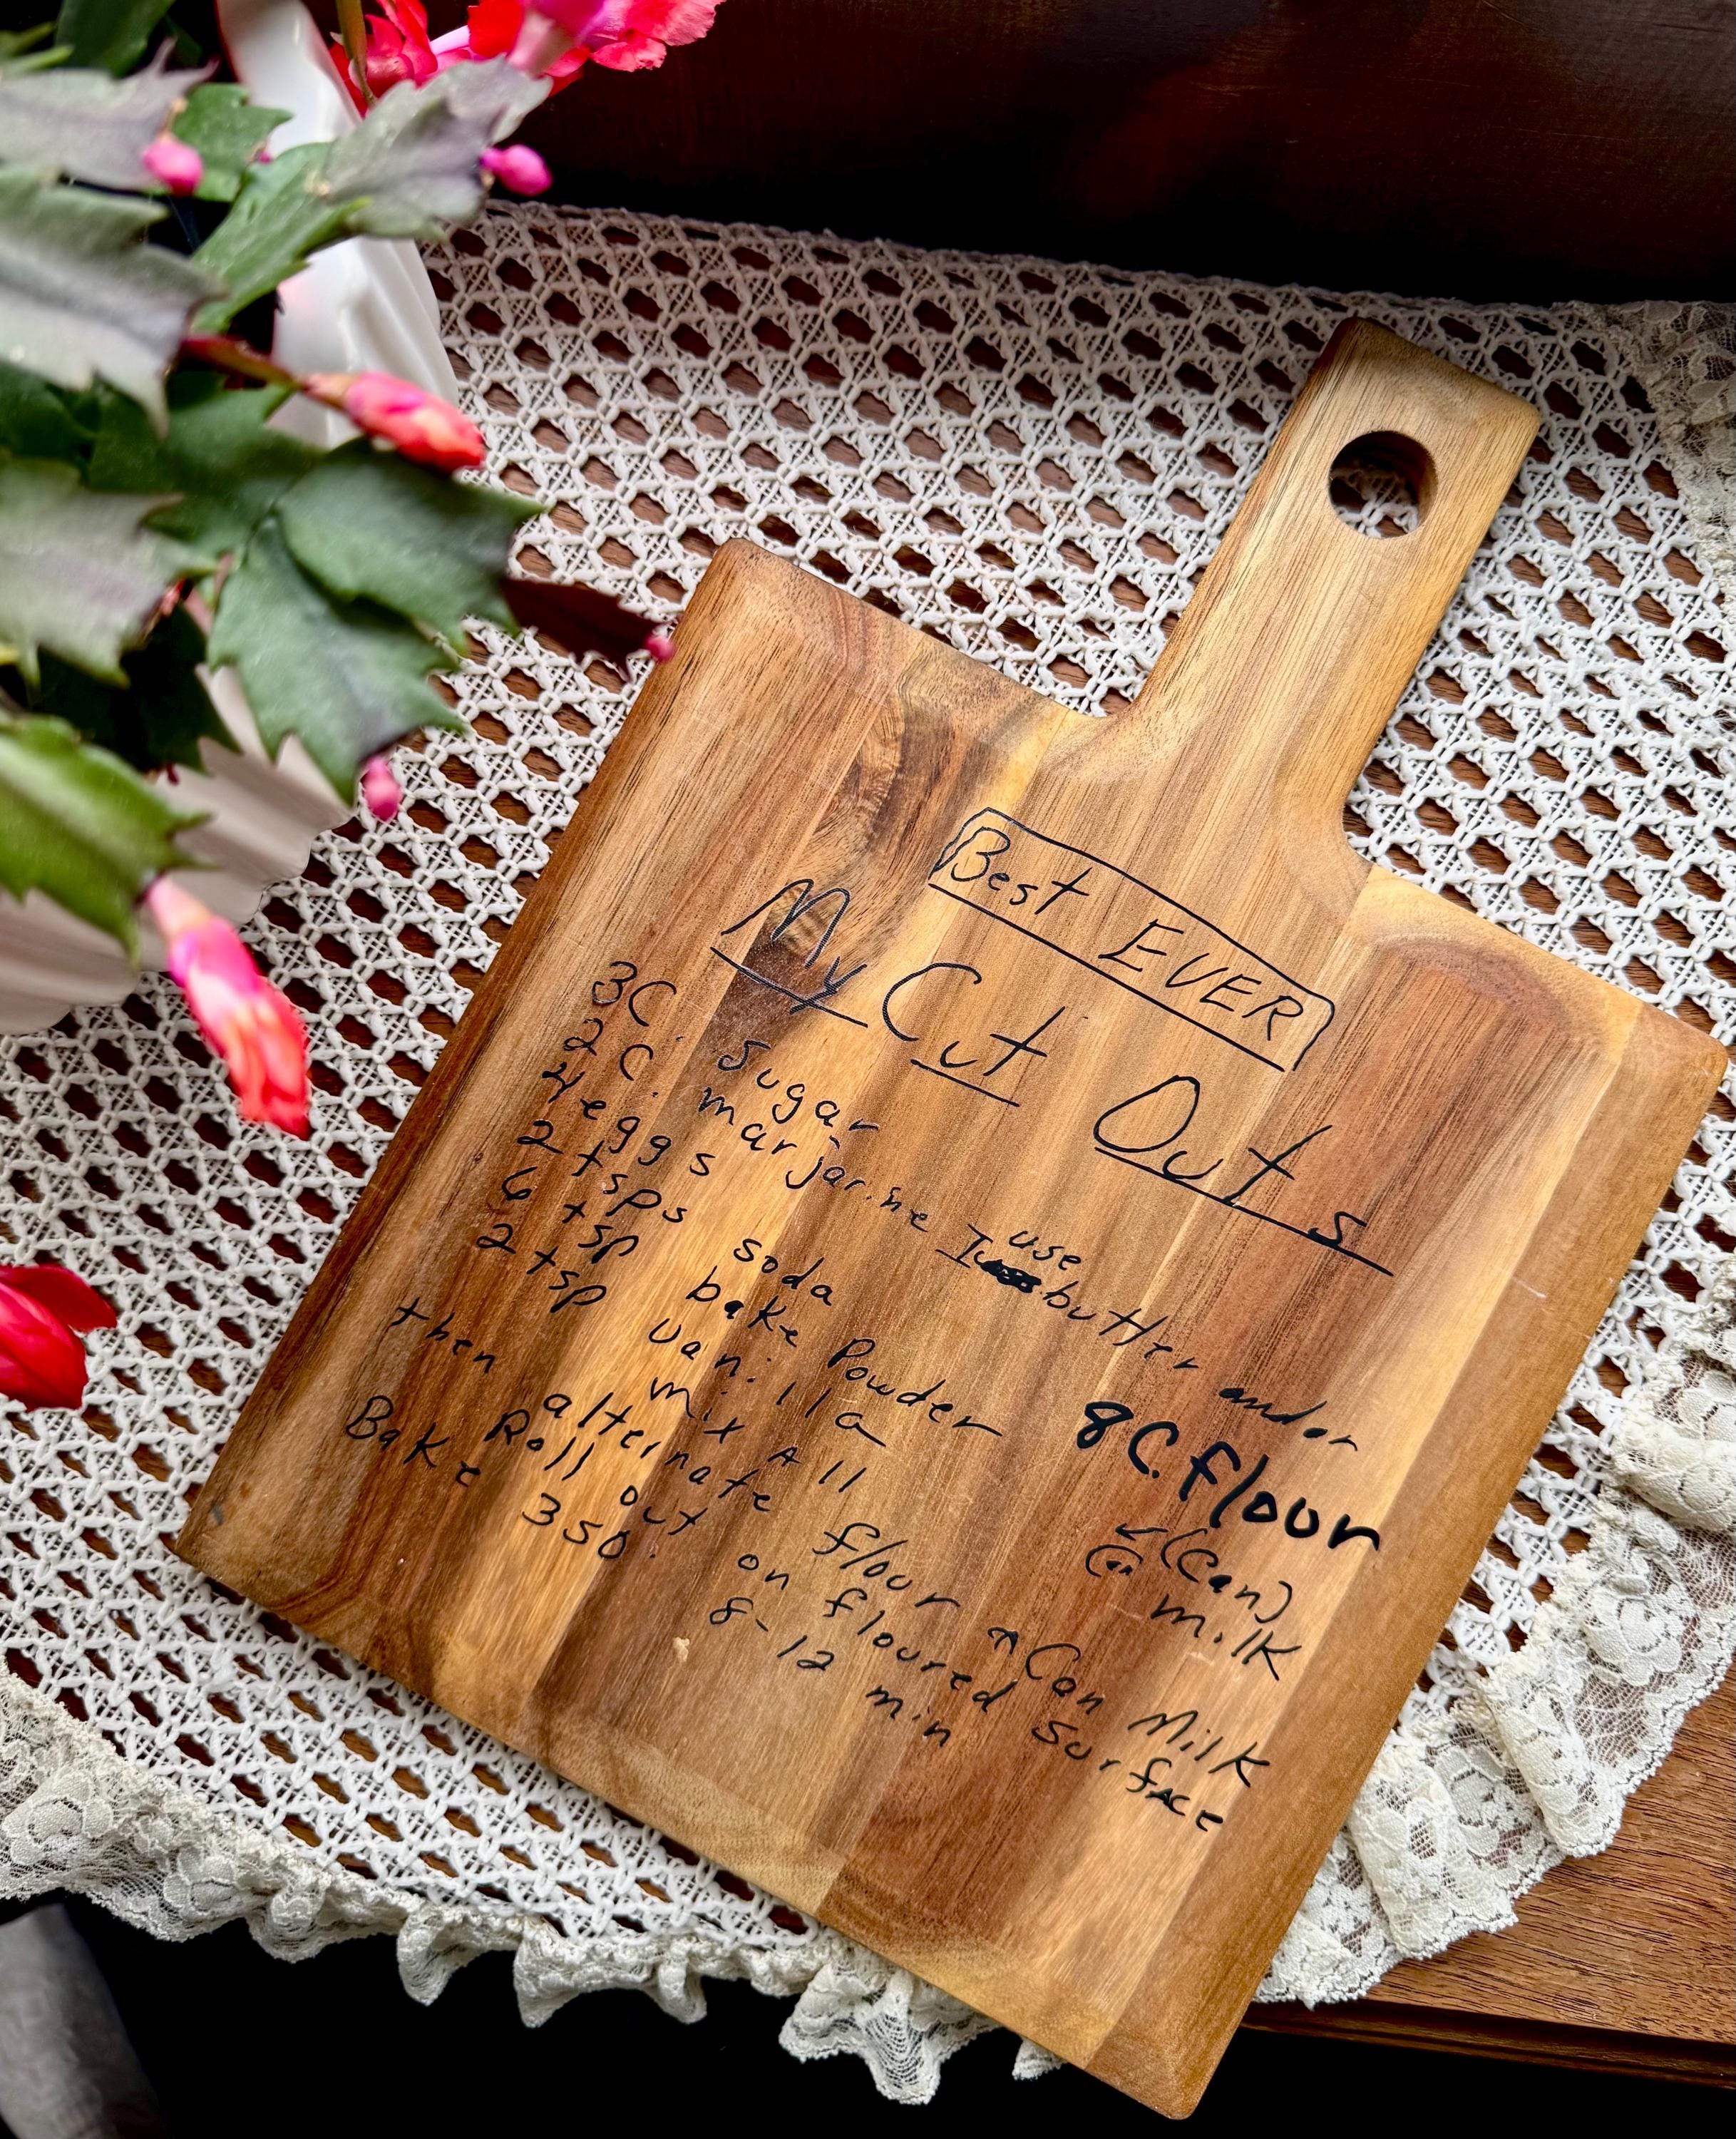 Best EVER
My Cut Outs
3C. sugar
2 C. marjarine I use butter and or
4 eggs
2 tsps soda
6 tsp bake Powder
2 tsp vanilla
8C. flour
mix All
(Can)
milk
then alternate flour Can Milk
Roll out on floured surface
Bake 350. 8-12 min